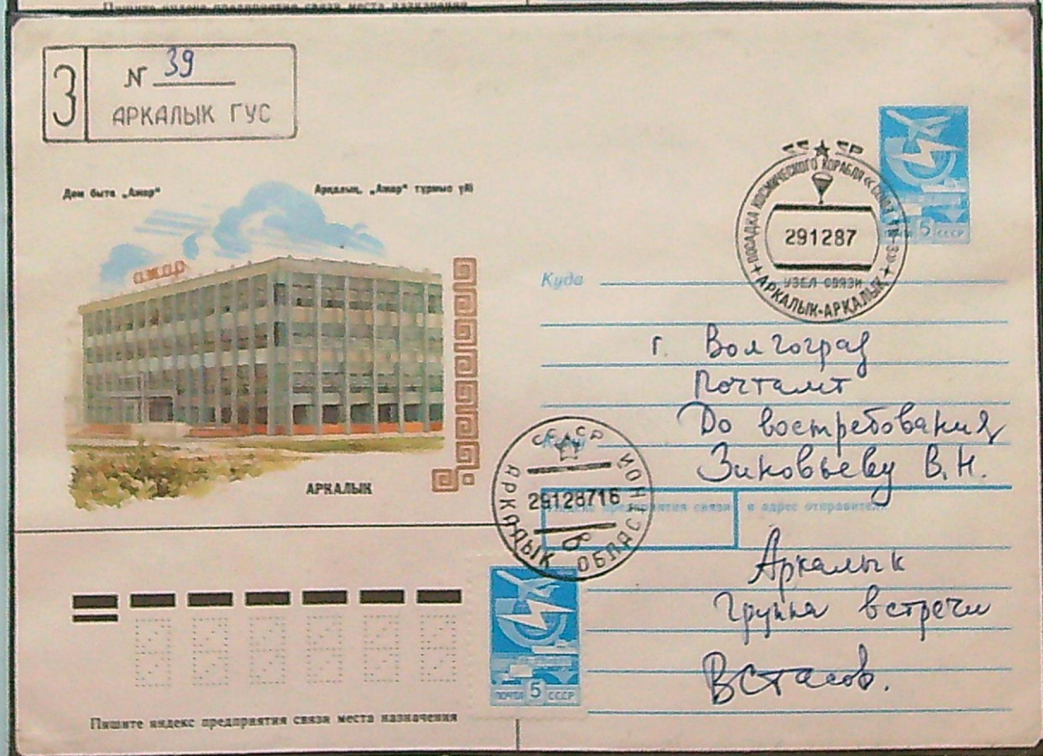 Пишите индекс предприятия связи места назначения
З
N 39
АРКАЛЫК ГУС
Дом быта „Ажар“
Арқалық, „Ажар“ тұрмыс үйі
ажар
АРКАЛЫК
СССР
ПОСАДКА КОСМИЧЕСКОГО КОРАБЛЯ «СОЮЗ ТМ-3»
291287
УЗЕЛ СВЯЗИ
АРКАЛЫК-АРҚАЛЫҚ
ПОЧТА 5 СССР
Куда
г. Волгоград
Почтамт
До востребования
Кому
Зиновьеву В.Н.
СССР
АРКАЛЫК ОБЛАС
29128716
в
Индекс предприятия связи и адрес отправителя
Аркалык
Группа встречи
ВСтасов.
ПОЧТА 5 СССР
Пишите индекс предприятия связи места назначения